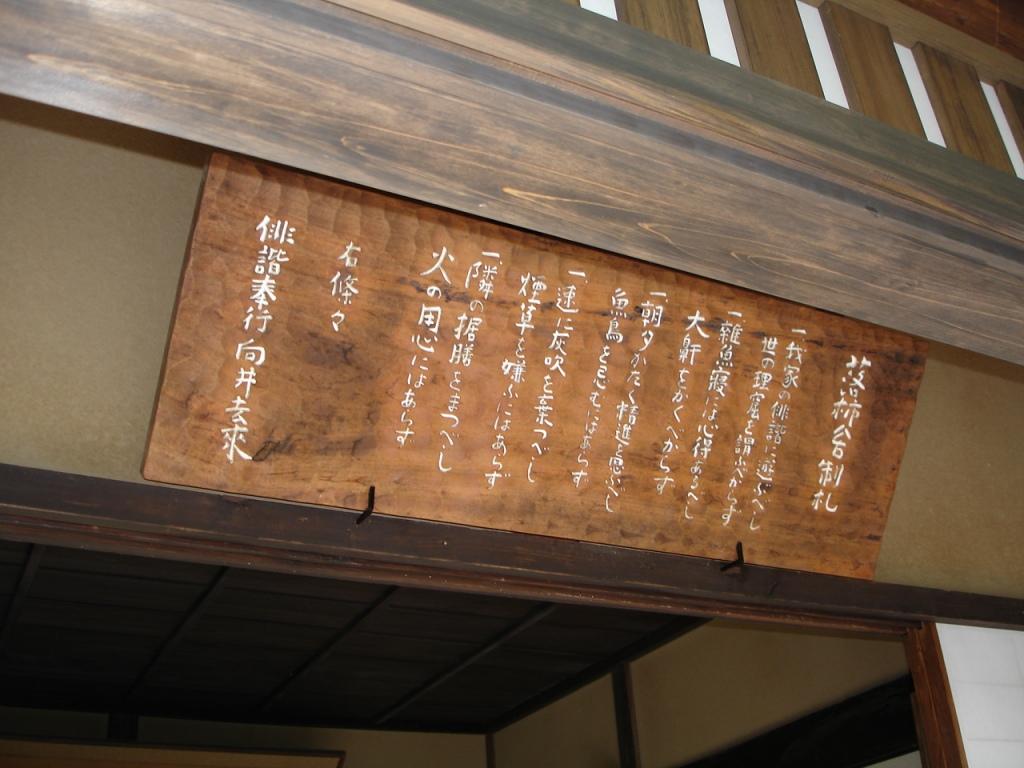 落柿舎制札
一 我家の俳諧に遊ぶべし
世の理窟を謂ふべからず
一 雑魚寝には心得あるべし
大鼾をかくべからず
一 朝夕かたく精進を思ふべし
魚鳥を忌むにはあらず
一 速に灰吹を棄つべし
煙草を嫌ふにはあらず
一 隣の据膳をまつべし
火の用心にはあらず
右條々
俳諧奉行 向井去来